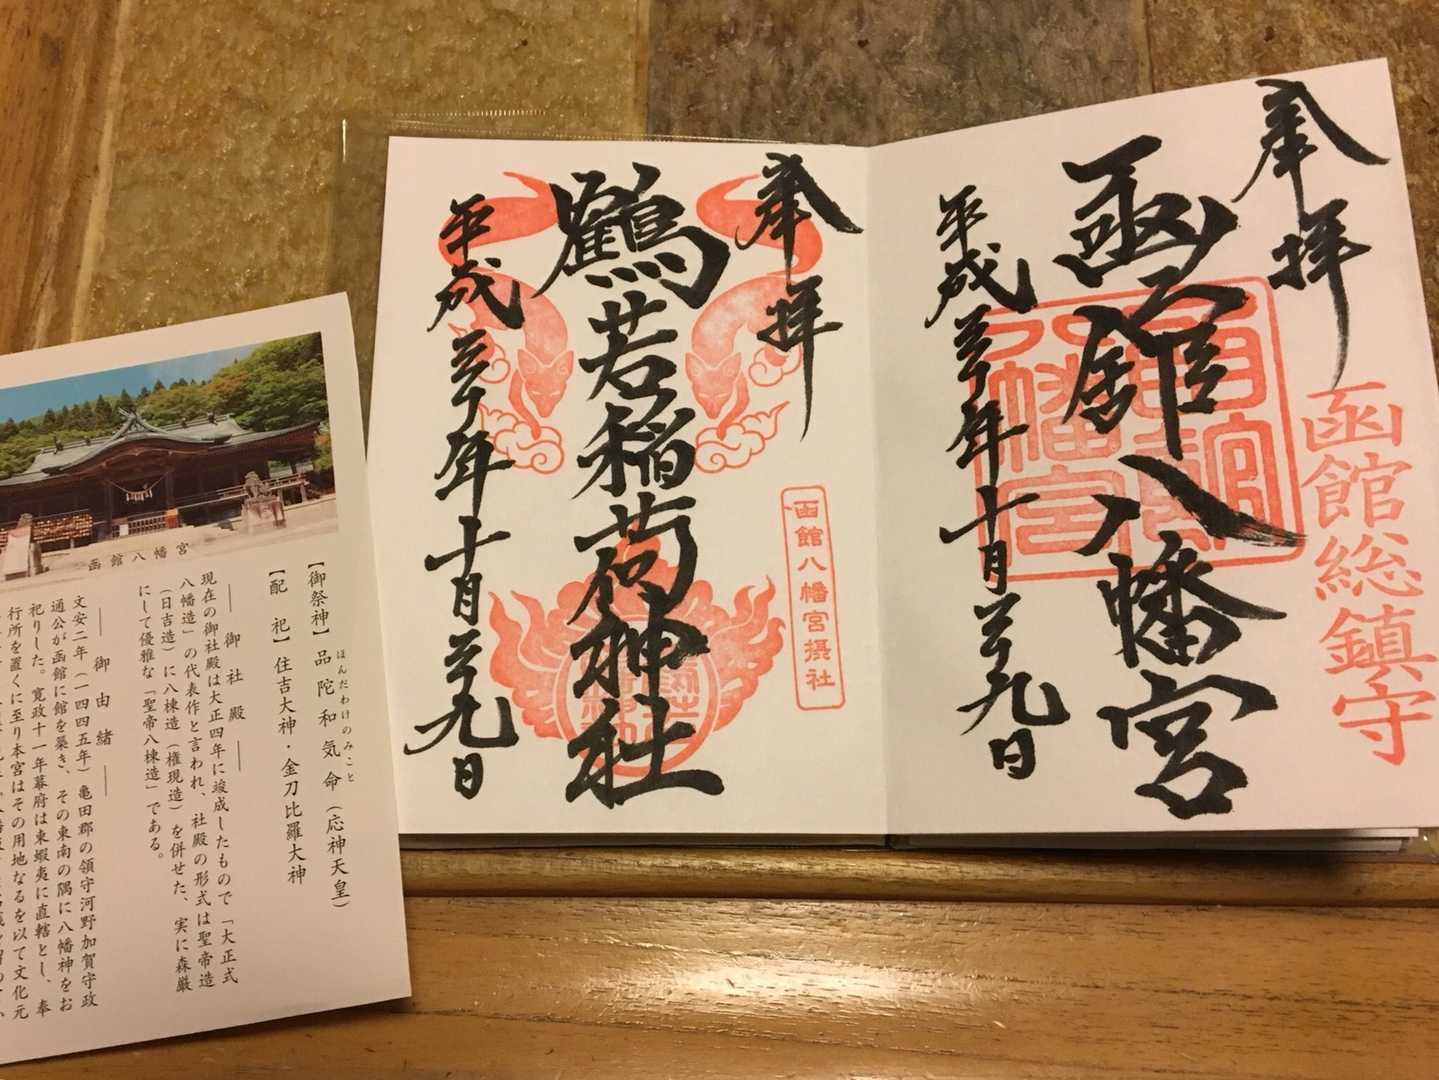 奉拝
函館総鎮守
函館八幡宮
平成三十年十月二十九日
奉拝
函館八幡宮摂社
鶴若稲荷神社
平成三十年十月二十九日
函館八幡宮
【御祭神】品陀和気命（応神天皇）
ほんだわけのみこと
【配 祀】住吉大神・金刀比羅大神
――御社殿――
現在の御社殿は大正四年に竣成したもので「大正式
八幡造」の代表作と言われ、社殿の形式は聖帝造
（日吉造）に八棟造（権現造）を併せた、実に森厳
にして優雅な「聖帝八棟造」である。
――御由緒――
文安二年（一四四五年）亀田郡の領守河野加賀守政
通公が函館に館を築き、その東南の隅に八幡神をお
祀りした。寛政十一年幕府は東蝦夷に直轄とし、奉
行所を置くに至り本宮はその用地なるを以て文化元